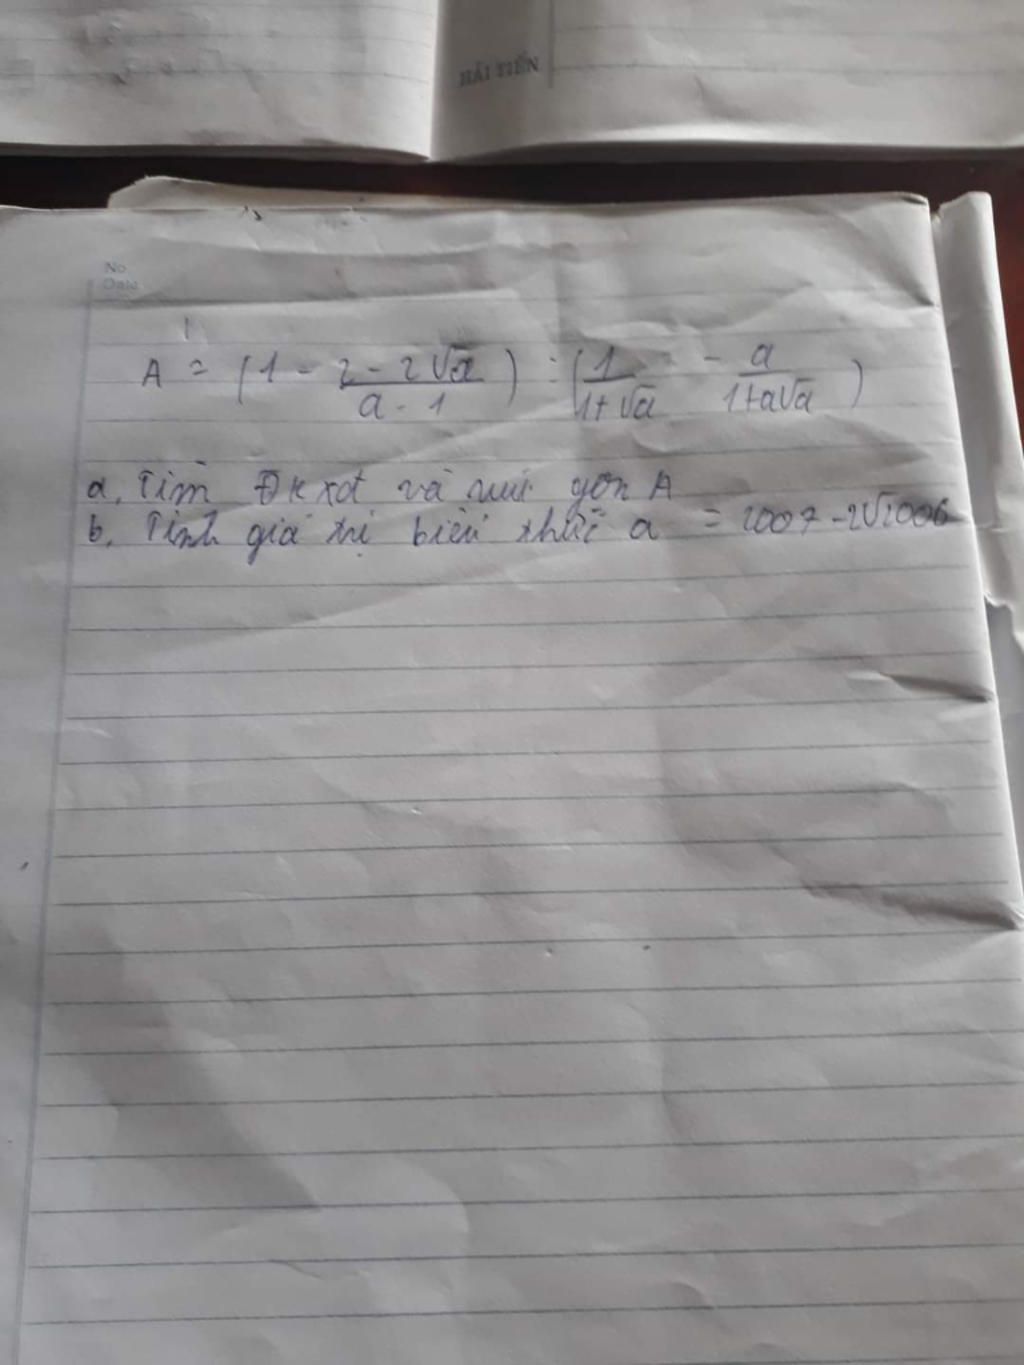 HẢI TIẾN
No.
Date
A = (1 - \frac{2 - 2\sqrt{a}}{a - 1}) : (\frac{1}{1+\sqrt{a}} - \frac{a}{1+a\sqrt{a}})
a, Tìm ĐKXĐ và rút gọn A
b, Tính giá trị biểu thức a = 2007 - 2\sqrt{2006}